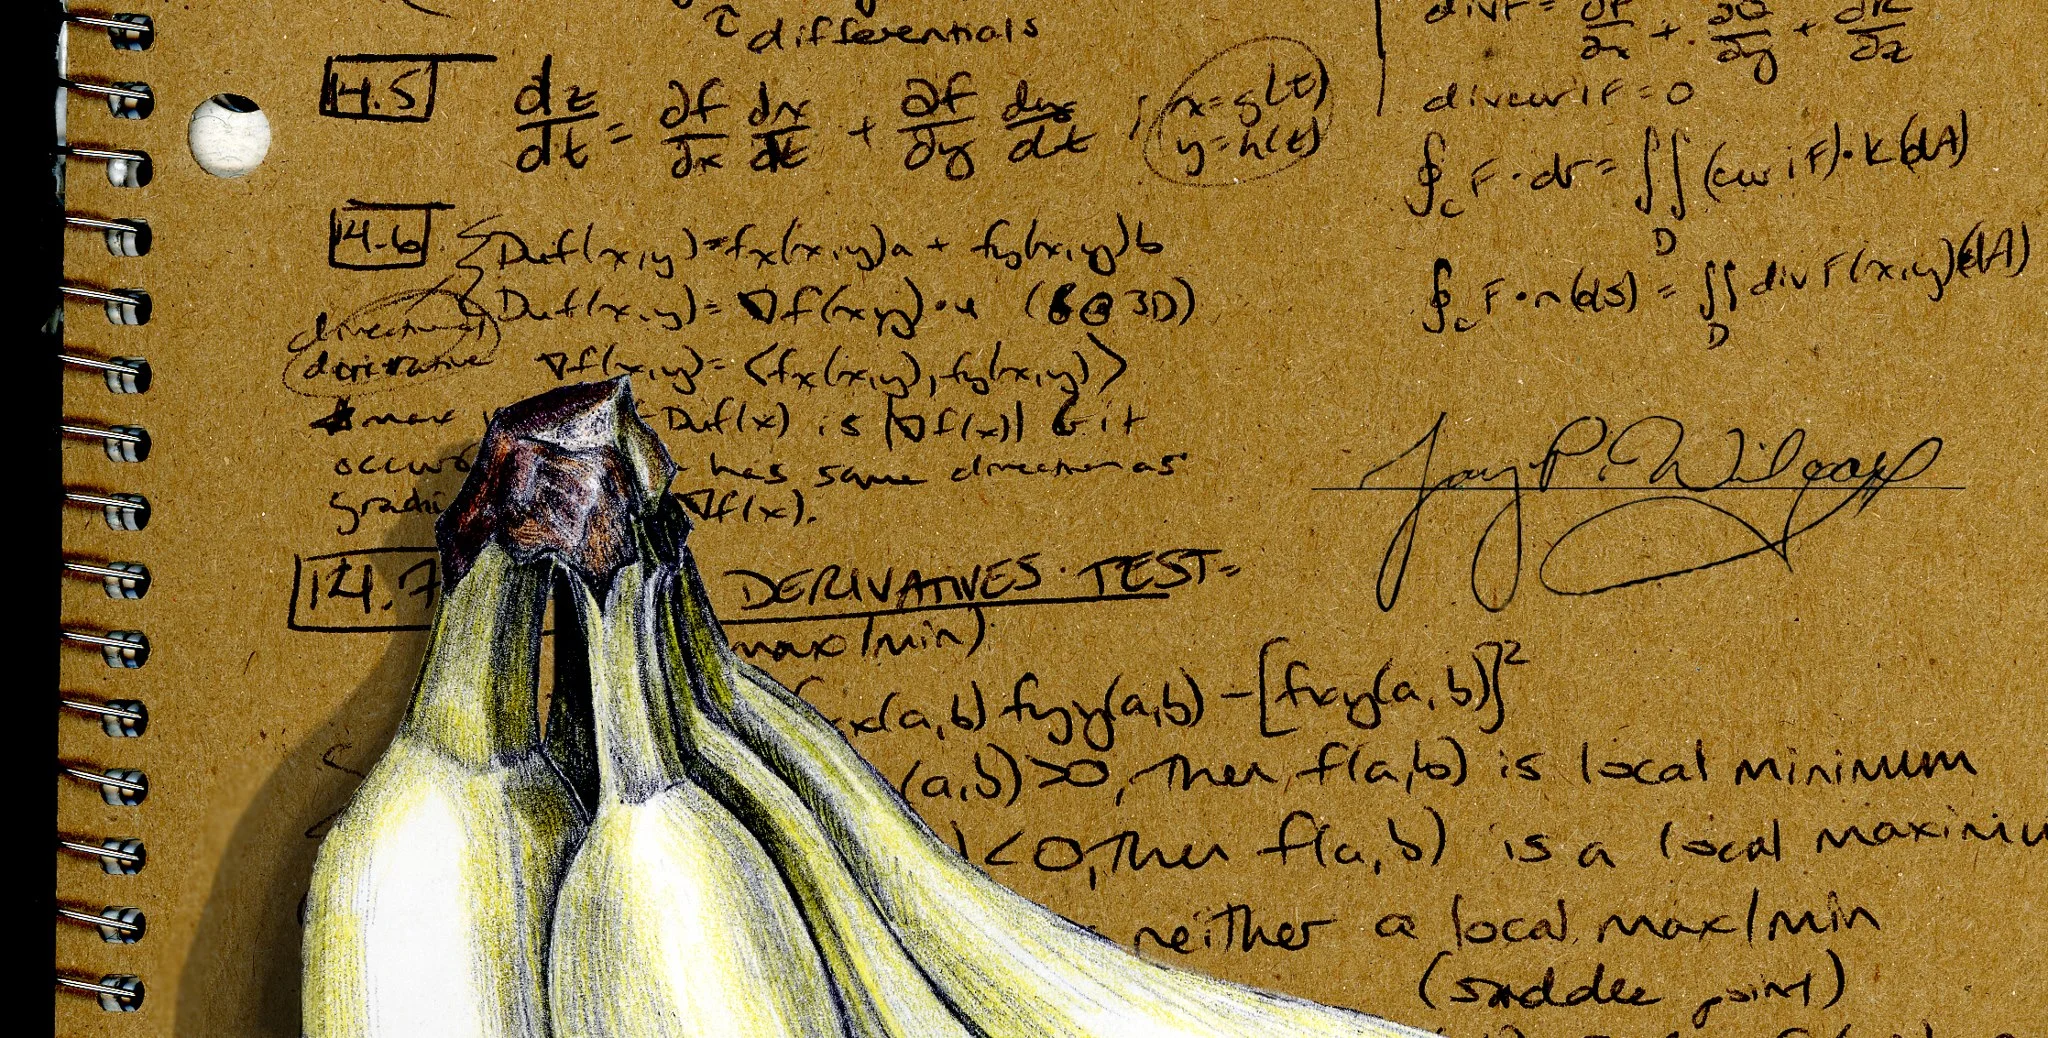 differentials
14.5 dz/dt = ∂f/∂x dx/dt + ∂f/∂y dy/dt ; x=g(t)
y=h(t)
14.6 Duf(x,y)=fx(x,y)a + fy(x,y)b
Duf(x,y)= ∇f(x,y)•u ( 3D)
directional
derivative ∇f(x,y)= ⟨fx(x,y), fy(x,y)⟩
max Duf(x) is |∇f(x)| & it
occurs has same direction as
∇f(x).
14.7 DERIVATIVES TEST=
max/min)
(a,b) fyy(a,b) – [fxy(a,b)]²
(a,b)>0, then f(a,b) is local minimum
)<0, then f(a,b) is a local maximu
neither a local max/min
(saddle point)
divF = ∂P/∂x + ∂Q/∂y + ∂R/∂z
divcurlF=0
∮c F•dr = ∬D (curlF)•k(dA)
∮c F•n(ds) = ∬D divF(x,y)(dA)
Jay P. Wilcox